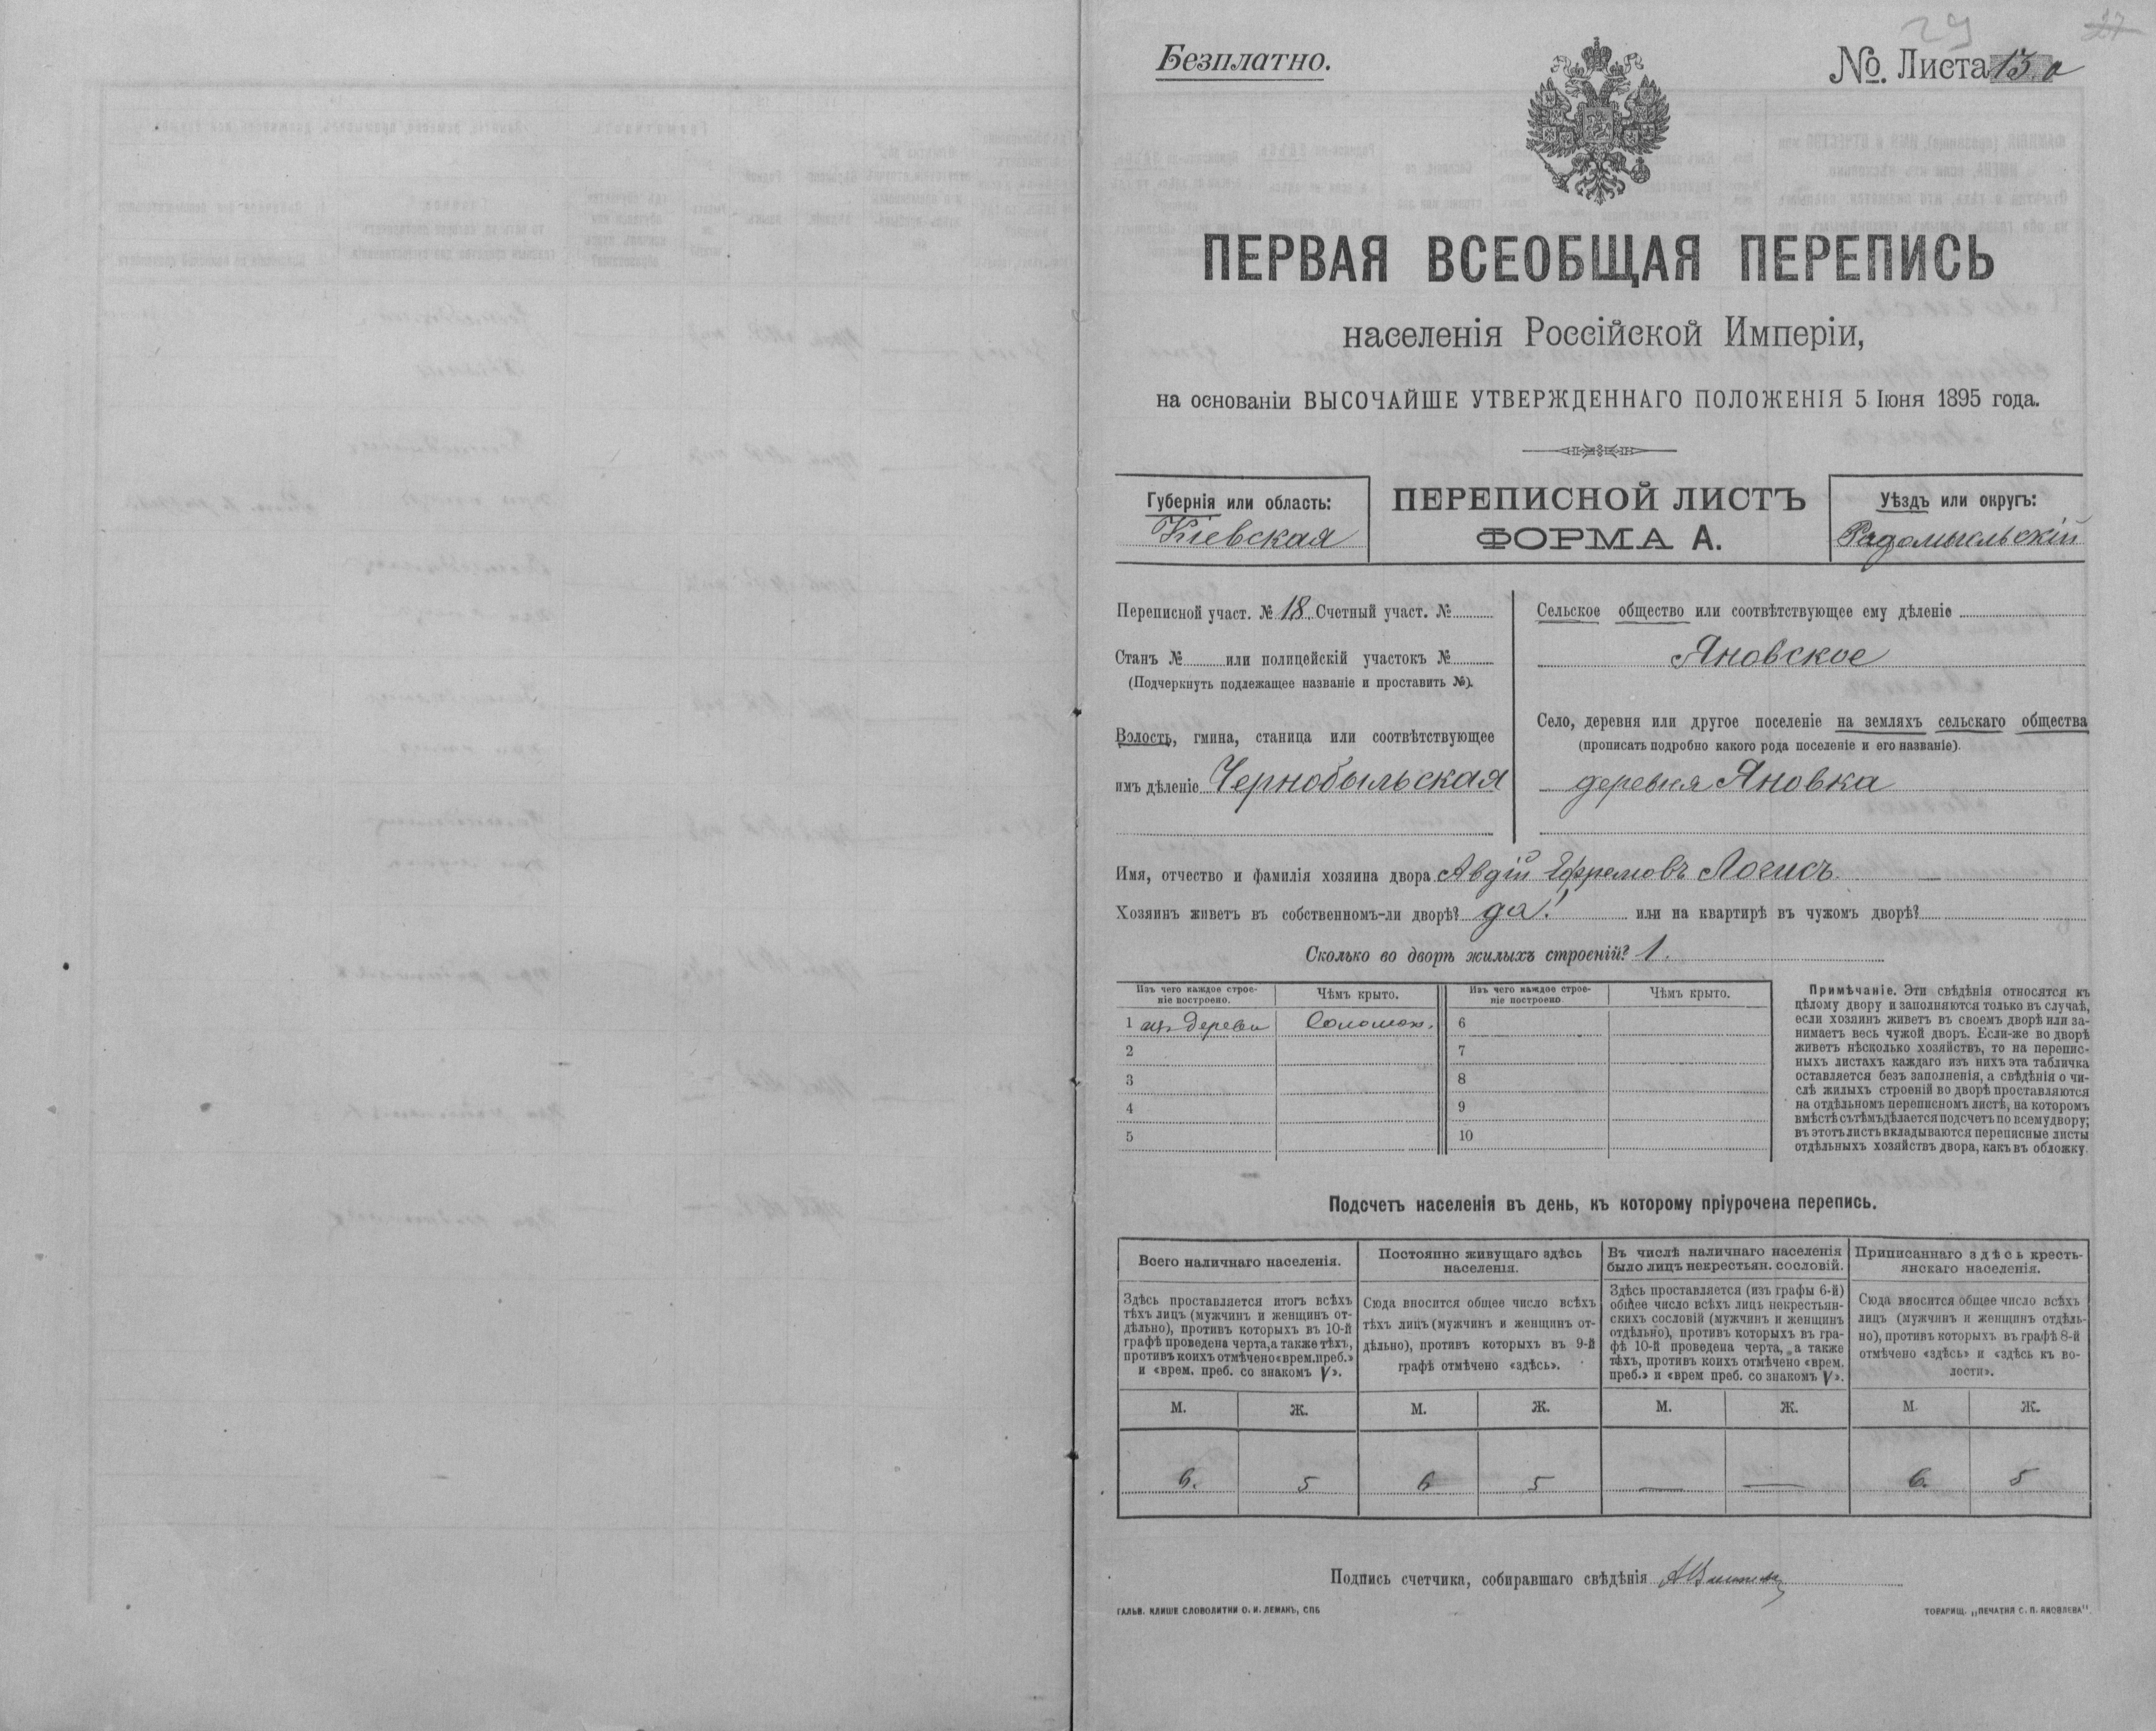 29
27
Безплатно.
№. Листа 13.а
ПЕРВАЯ ВСЕОБЩАЯ ПЕРЕПИСЬ
населенія Россійской Имперіи,
на основаніи ВЫСОЧАЙШЕ УТВЕРЖДЕННАГО ПОЛОЖЕНІЯ 5 Іюня 1895 года.
Губернія или область:
Кіевская
ПЕРЕПИСНОЙ ЛИСТЪ
ФОРМА А.
Уѣздъ или округъ:
Радомысльскій
Переписной участ. № 18. Счетный участ. №
Станъ № или полицейскій участокъ №
(Подчеркнуть подлежащее названіе и проставить №).
Волость, гмина, станица или соотвѣтствующее
имъ дѣленіе Чернобыльская
Сельское общество или соотвѣтствующее ему дѣленіе
Яновское
Село, деревня или другое поселеніе на земляхъ сельскаго общества
(прописать подробно какого рода поселеніе и его названіе).
деревня Яновка
Имя, отчество и фамилія хозяина двора Авдій Ефремовъ Логисъ.
Хозяинъ живетъ въ собственномъ-ли дворѣ? да! или на квартирѣ въ чужомъ дворѣ?
Сколько во дворѣ жилыхъ строеній? 1.
Изъ чего каждое строе-
ніе построено.
Чѣмъ крыто.
Изъ чего каждое строе-
ніе построено
Чѣмъ крыто.
1 изъ дерева Соломой. 6
2 7
3 8
4 9
5 10
Примѣчаніе. Эти свѣдѣнія относятся къ
цѣлому двору и заполняются только въ случаѣ,
если хозяинъ живетъ въ своемъ дворѣ или за-
нимаетъ весь чужой дворъ. Если-же во дворѣ
живетъ нѣсколько хозяйствъ, то на перепис-
ныхъ листахъ каждаго изъ нихъ эта табличка
оставляется безъ заполненія, а свѣдѣнія о чи-
слѣ жилыхъ строеній во дворѣ проставляются
на отдѣльномъ переписномъ листѣ, на которомъ
вмѣстѣ съ тѣмъ дѣлается подсчетъ по всему двору;
въ этотъ листъ вкладываются переписные листы
отдѣльныхъ хозяйствъ двора, какъ въ обложку.
Подсчетъ населенія въ день, къ которому пріурочена перепись.
Всего наличнаго населенія.
Здѣсь проставляется итогъ всѣхъ
тѣхъ лицъ (мужчинъ и женщинъ от-
дѣльно), противъ которыхъ въ 10-й
графѣ проведена черта, а также тѣхъ,
противъ коихъ отмѣчено «врем. преб.»
и «врем. преб. со знакомъ V».
Постоянно живущаго здѣсь
населенія.
Сюда вносится общее число всѣхъ
тѣхъ лицъ (мужчинъ и женщинъ от-
дѣльно), противъ которыхъ въ 9-й
графѣ отмѣчено «здѣсь».
Въ числѣ наличнаго населенія
было лицъ некрестьян. сословій.
Здѣсь проставляется (изъ графы 6-й)
общее число всѣхъ лицъ некрестьян-
скихъ сословій (мужчинъ и женщинъ
отдѣльно), противъ которыхъ въ гра-
фѣ 10-й проведена черта, а также
тѣхъ, противъ коихъ отмѣчено «врем.
преб.» и «врем преб. со знакомъ V».
Приписаннаго здѣсь кресть-
янскаго населенія.
Сюда вносится общее число всѣхъ
лицъ (мужчинъ и женщинъ отдѣль-
но), противъ которыхъ въ графѣ 8-й
отмѣчено «здѣсь» и «здѣсь къ во-
лости».
М. Ж. М. Ж. М. Ж. М. Ж.
6. 5 6 5 — — 6. 5
Подпись счетчика, собиравшаго свѣдѣнія
ГАЛЬВ. КЛИШЕ СЛОВОЛИТНИ О. И. ЛЕМАНЪ, СПБ
ТОВАРИЩ. „ПЕЧАТНЯ С. П. ЯКОВЛЕВА“